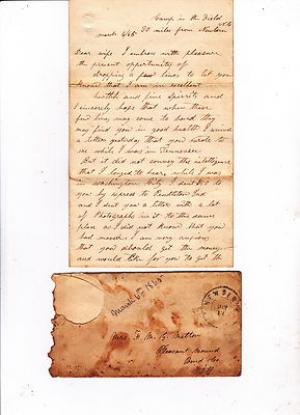 Camp in the Field
N.C.
March 6/65 30 miles from Newbern
Dear wife I embrace with pleasure
the present opportunity of
droping a few lines to let you
know that I am in excellent
health and fine spirits and
I sincerely hope that when these
few lines may come to hand they
may find you in good health I
a letter yesterday that you wrote to
me while I was in Tennessee
But it did not convey the inteligence
that I longed to hear, while I was
in Washington City I sent
you by express to
and I sent you a letter with a lot
of Photographs in it to the same
place as I did not know that you
had moved I am very anxious
that you should get the money
and would like for you to get the
March 6th 1865
NEW BERN
Mrs.
Pleasant Mound
Bond Co.